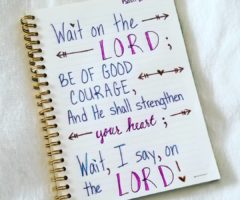 Wait on the
LORD;
BE OF GOOD
COURAGE,
And He shall strengthen
your heart;
Wait, I say, on
the LORD!